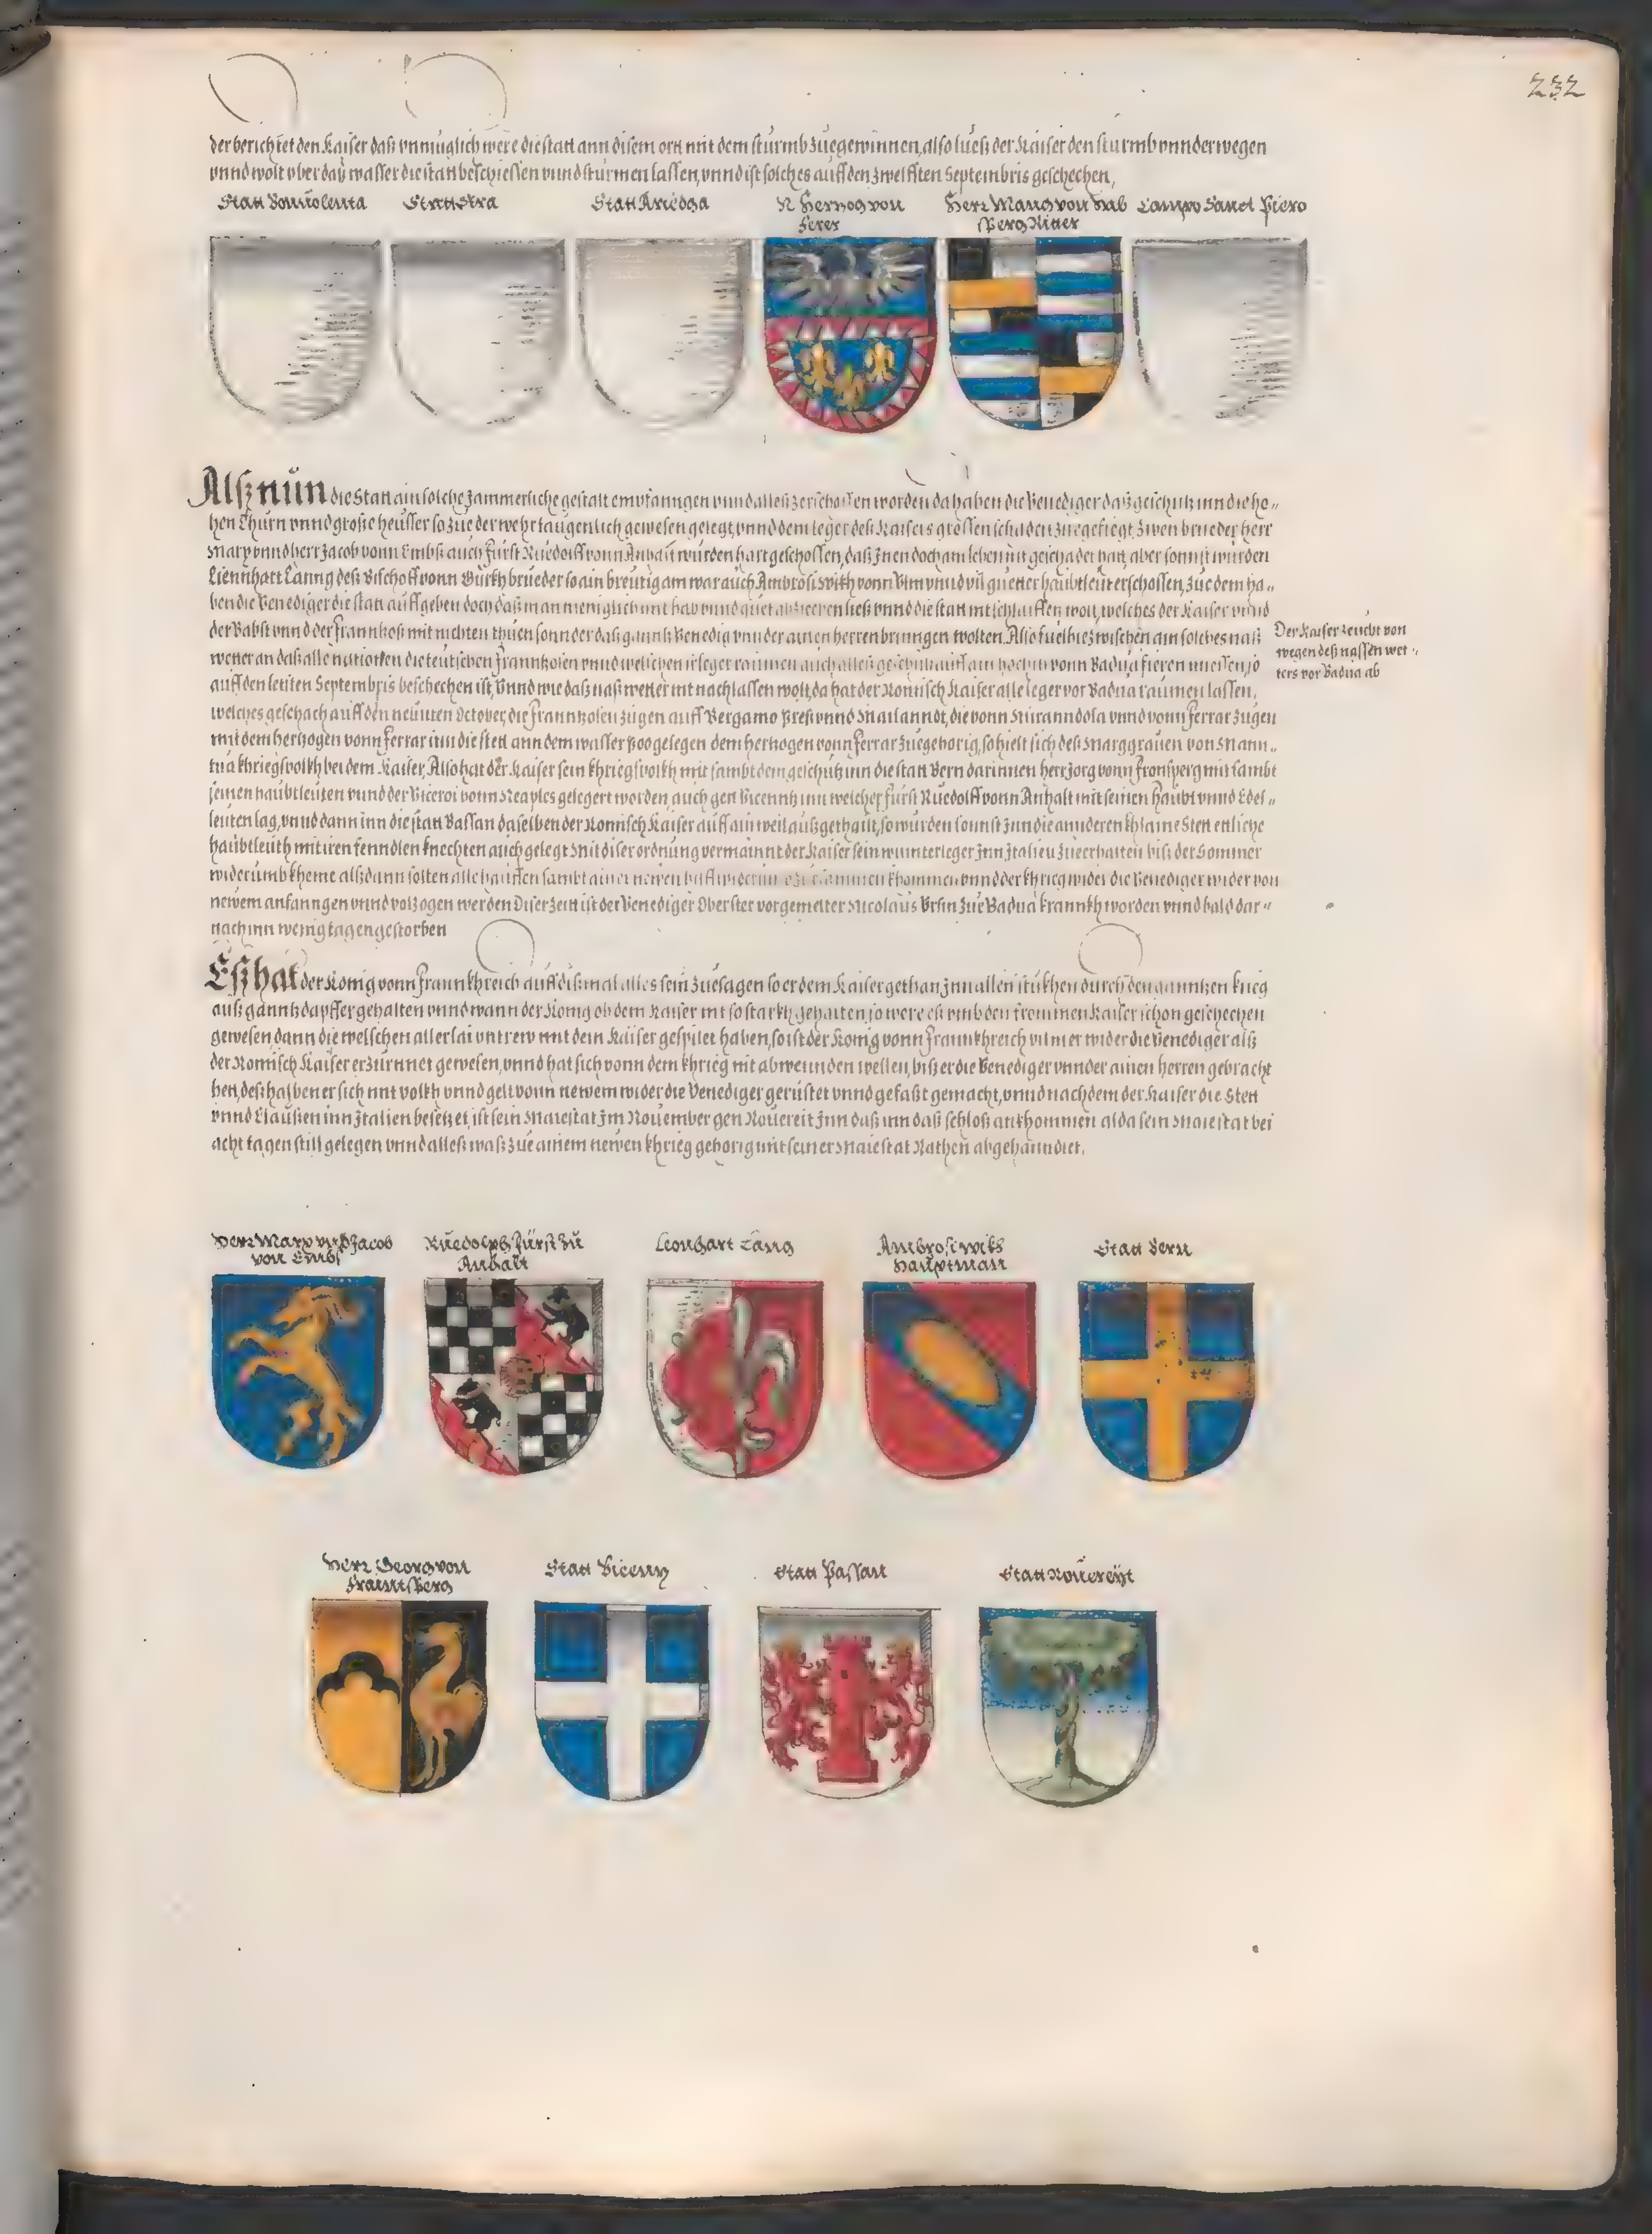 232
der berichtet den Kaiser daß vnmuglich were die statt ann disem ortt mit dem sturmb zuegewinnen, also lueß der Kaiser den sturmb vnnderwegen
vnnd wolt vber daß wasser die statt beschiessen vnnd sturmen lassen, vnnd ist solches auff den zwelfften Septembris geschechen,
Statt Bouuolenta
Statt Stra
Statt
N Hertzog von
Ferer
Herr Mang von Hab
sperg Ritter
Campo Sanct Piero
Alß nun die Statt ain solche Jammerliche gestalt empfanngen vnnd alles zerschossen worden da haben die Venediger daß geschutz inn die ho-
hen Thurn vnnd große heusser so zue der wehr taugenlich gewesen gelegt, vnnd dem leger deß Kaisers grossen schaden zuegefiegt, zwen brueder herr
Marx vnnd herr Jacob vonn Embß auch Furst Ruedolff vonn Anhalt wurden hart geschossen, daß Jnen doch am leben nit geschadet hatt, aber sonnst wurden
Liennhart Lanng deß Bischoff vonn Gurkh brueder so ain breutigam war auch Ambrosi wikh vonn Vlm vnnd vil guetter haubtleut erschossen, zue dem ha-
ben die Venediger die statt auffgeben doch daß man meniglich mit hab vnnd guet abziechen ließ vnnd die statt nit schlaiffen wolt, welches der Kaiser vnnd
der Babst vnnd der Frannkoß mit nichten thuen sonnder daß gannß Venedig vnnder ainen herren bringen wolten. Also fuel hiezwischen ain solches naß
wetter an daß alle nationen die teutschen Frannkosen vnnd welschen ir leger raumen auch alles geschutz vonn Badua fieren muessen, so
auff den letsten Septembris beschechen ist, Vnnd wie daß naß wetter nit nachlassen wolt, da hat der Romisch Kaiser alle leger vor Badua raumen lassen,
welches geschach auff den neunten October, die Frannkosen zugen auff Bergamo Breß vnnd Mailanndt, die vonn Miranndola vnnd vonn Ferrar zugen
mit dem hertzogen vonn Ferrar inn die stett ann dem wasser Poo gelegen dem hertzogen vonn Ferrar zuegehorig, so hielt sich deß Marggrauen von Mann-
tua khriegsvolkh bei dem Kaiser, Also hat der Kaiser sein khriegsvolkh mit sambt dem geschutz inn die statt Bern darinnen herr Jorg vonn Fronsperg mit sambt
seinen haubtleuten vnnd der Viceroi vonn Neaples gelegert worden, auch gen Vicenntz inn welcher Furst Ruedolff vonn Anhalt mit seinen haubt vnnd Edel-
leuten lag, vnnd dann inn die statt Bassan daselben der Romisch Kaiser auff ain weil außgethailt, so wurden sonnst Jnn die annderen khlaine Stett ettliche
haubtleuth mit iren fenndlen knechten auch gelegt Mit diser ordnung vermainnt der Kaiser sein wunterleger Jnn Jtalien zu erhalten biß der Sommer
widerumb kheme alßdann solten alle hauffen sambt ainer newen hilff widerumb zusammen khommen vnnd der khrieg wider die Venediger wider von
newem anfanngen vnnd volzogen werden Diser zeitt ist der Venediger Oberster vorgemelter Nicolaus Vrsin zue Badua krannkh worden vnnd bald dar-
nach inn wenig tagen gestorben
Der Kaiser zeucht von
wegen deß nassen wet-
ters vor Badua ab
Eß hat der Konig vonn Frannkhreich auff dißmal alles sein zuesagen so er dem Kaiser gethan Jnn allen stukhen durch den ganntzen krieg
auß ganntz dapffer gehalten vnnd wann der Konig ob dem Kaiser nit so starkh gehalten, so were eß vmb den frommen Kaiser schon geschechen
gewesen, dann die welschen allerlai vntrew mit dem Kaiser gespilet haben, so ist der Konig vonn Frannkhreich vil mer wider die Venediger alß
der Romisch Kaiser erzurnnet gewesen, vnnd hat sich vonn dem khrieg nit abwennden wellen, biß er die Venediger vnnder ainen herren gebracht
hett, deßhalben er sich mit volkh vnnd gelt vonn newem wider die Venediger gerustet vnnd gefaßt gemacht, vnnd nachdem der Kaiser die Stett
vnnd Clausen inn Jtalien besetzet, ist sein Maiestat Jm Nouember gen Rouereit Jnn daß inn daß schloß ankhommen alda sein Maiestat bei
acht tagen still gelegen vnnd alleß waß zue ainem newen khrieg gehorig mit seiner Maiestat Rathen abgehanndlet.
Herr Marx vnd Jacob
von Embs
Ruedolph Fürst zu
Anhalt
Leonhart Lang
Ambrosi wikh
Hauptman
Statt Bern
Herr Georg von
Frauntsperg
Statt Vicentz
Statt Passan
Statt Rouereyt